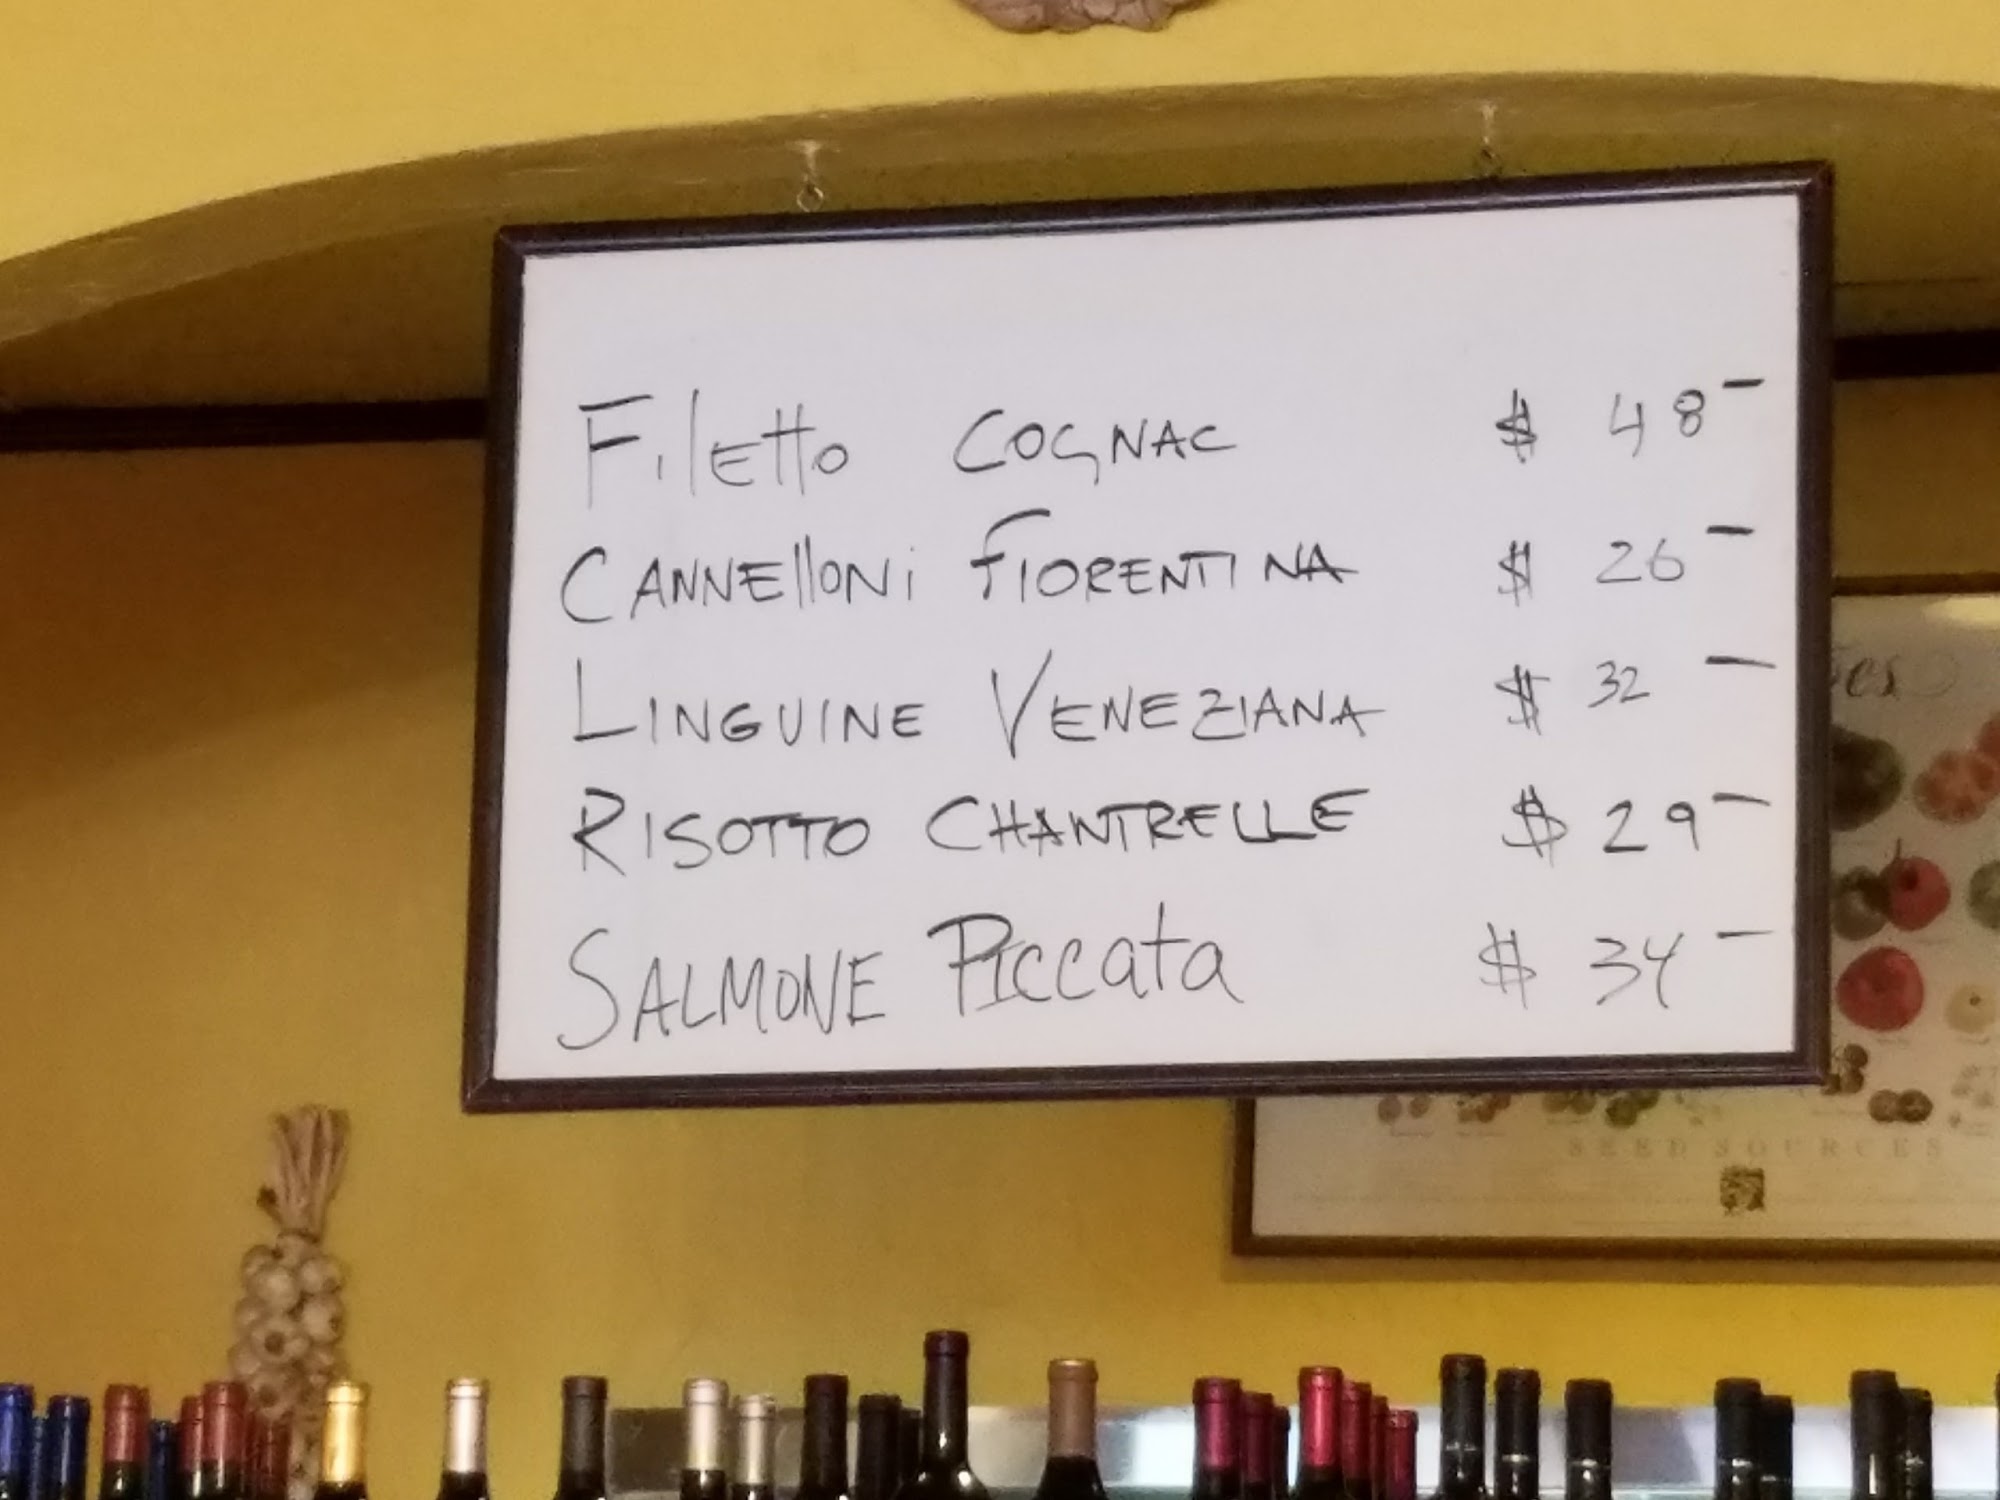 Filetto COGNAC $ 48-
CANNElloNi FIORENTINA $ 26-
LINGUINE VENEZIANA $ 32-
RISOTTO CHANTRELLE $ 29-
SALMONE PIccata $ 34-
SEED SOURCES